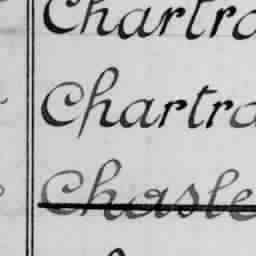 Chartra
Chartra
Chasle